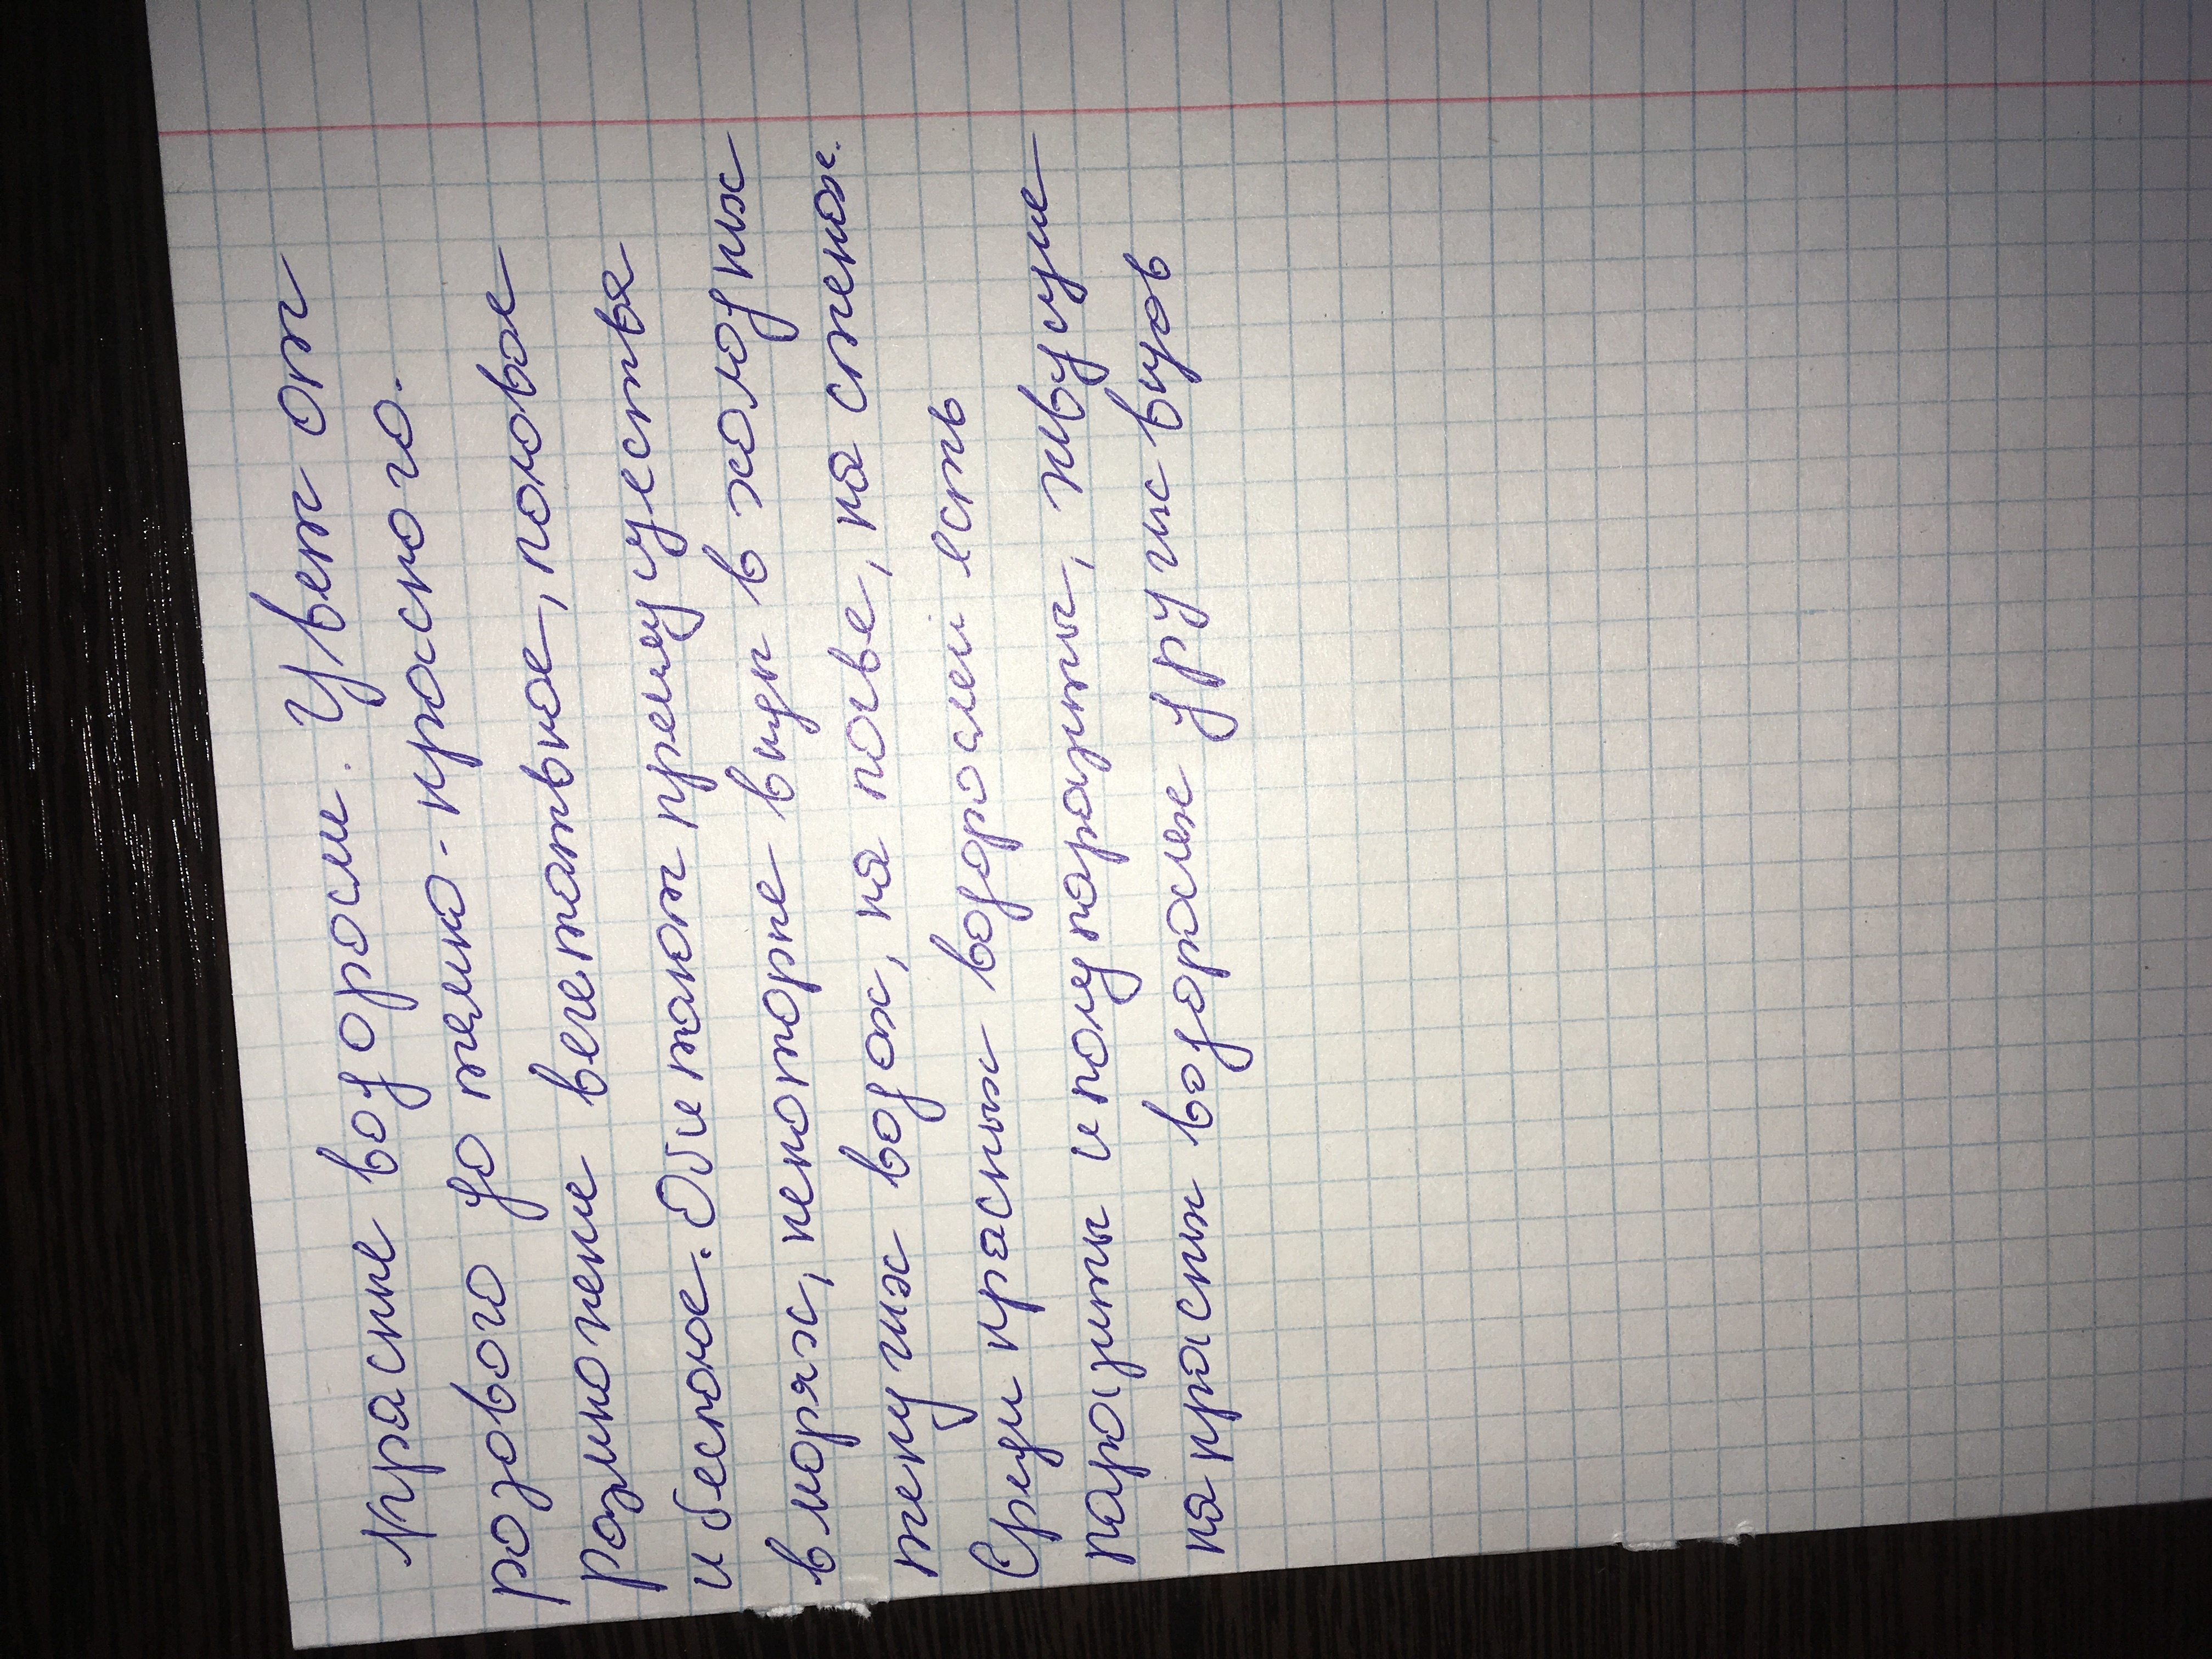 Красные водоросли. Цвет от
розового до темно-красного.
размножение вегетативное, половое
и бесполое. Обитают преимущества
в морях, некоторые виды в холодных
текучих водах, на почве, на стенах.
Среди красных водорослей есть
паразиты и полупаразиты, живущие
на красных водорослях других видов